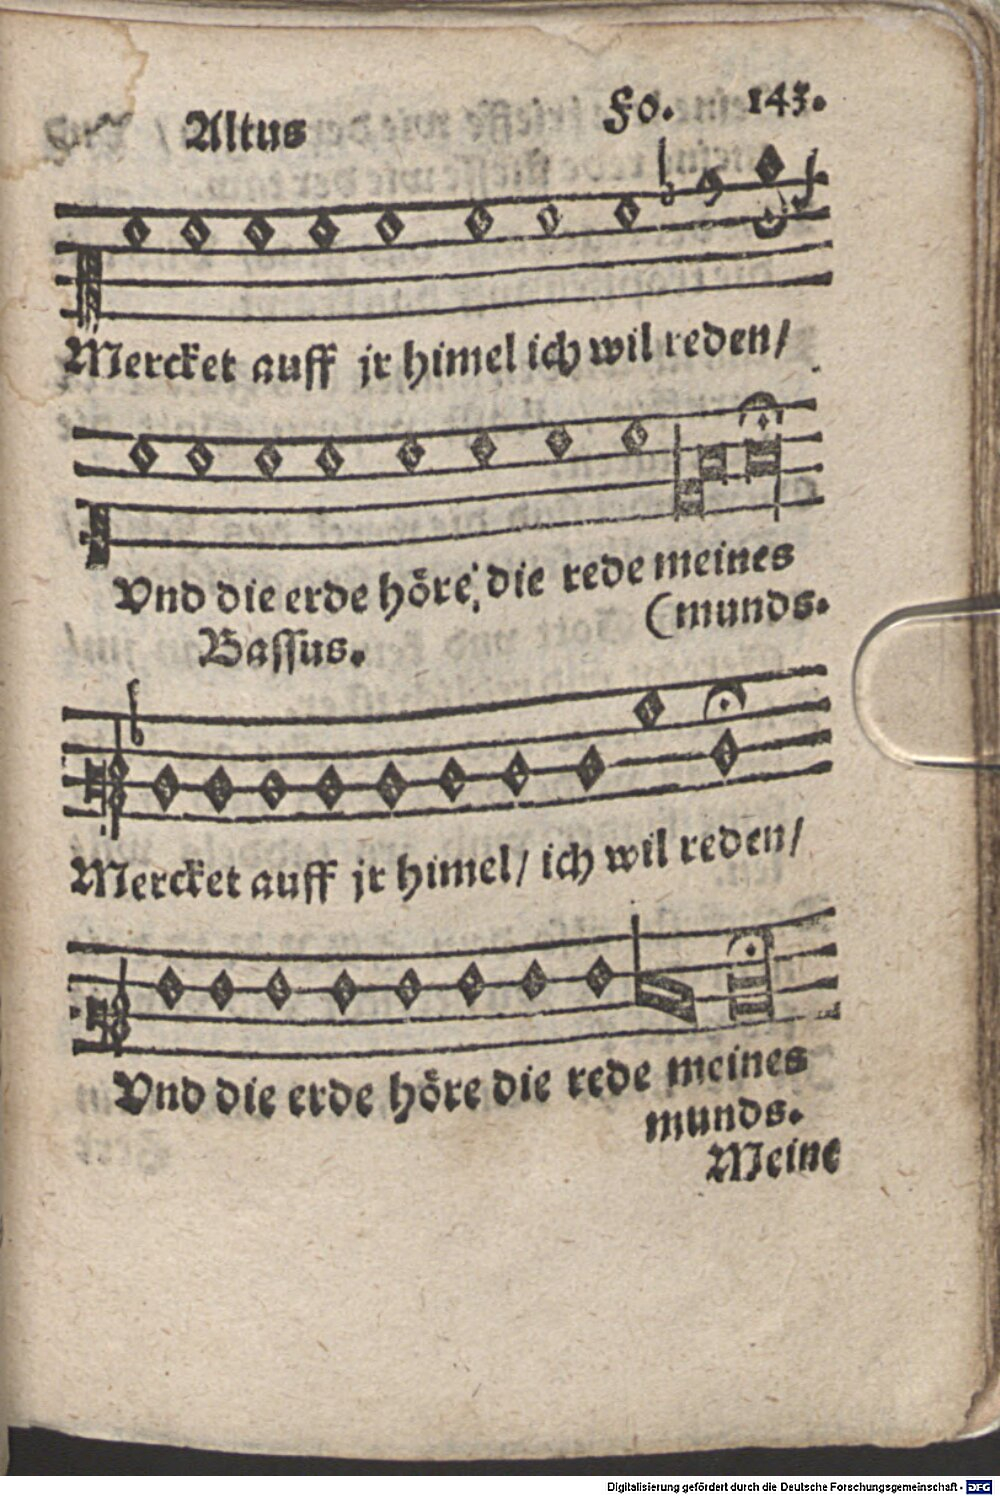 Altus Fo. 143.
Mercket auff jr himel ich wil reden/
Vnd die erde höre: die rede meines
(munds.
Bassus.
Mercket auff jr himel/ ich wil reden/
Vnd die erde höre die rede meines
munds.
Meine
Digitalisierung gefördert durch die Deutsche Forschungsgemeinschaft - DFG